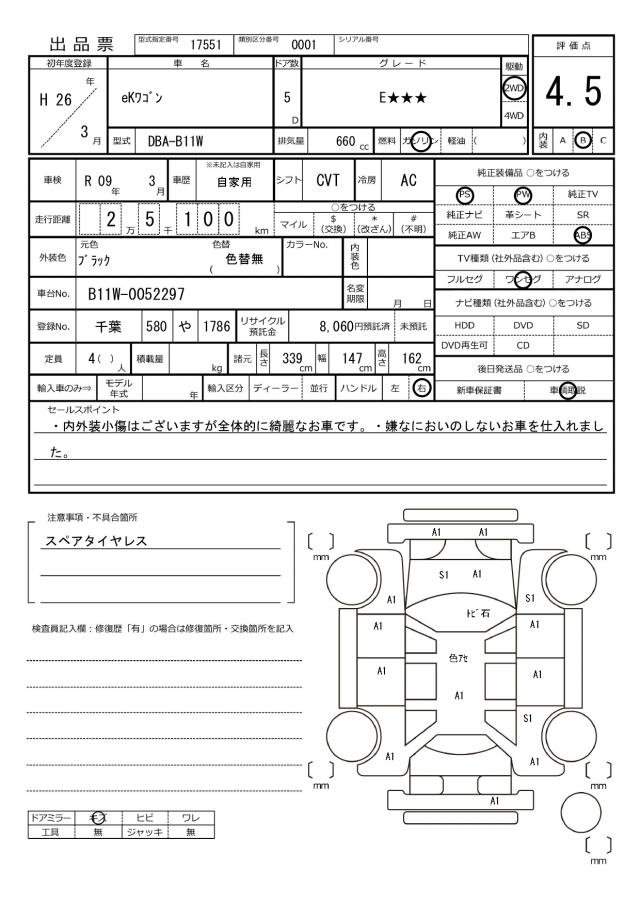 出品票 型式指定番号 17551 類別区分番号 0001 シリアル番号
評価点
4.5
内装 A B C
初年度登録 車名 ドア数 グレード 駆動
H 26 年 3 月 eKワゴン 5 D E★★★ 2WD 4WD
型式 DBA-B11W 排気量 660 cc 燃料 ガソリン 軽油 ( )
車検 R 09 年 3 月 車歴 ※未記入は自家用 自家用 シフト CVT 冷房 AC
走行距離 2 万 5 千 1 0 0 km ○をつける
マイル $ (交換) * (改ざん) # (不明)
外装色 元色 ブラック 色替 ( 色替無 ) カラーNo. 内装色
車台No. B11W-0052297 名変期限 月 日
登録No. 千葉 580 や 1786 リサイクル預託金 8,060円預託済 未預託
定員 4( ) 人 積載量 kg 諸元 長さ 339 cm 幅 147 cm 高さ 162 cm
輸入車のみ⇒ モデル年式 年 輸入区分 ディーラー 並行 ハンドル 左 右
純正装備品 ○をつける
PS PW 純正TV
純正ナビ 革シート SR
純正AW エアB ABS
TV種類(社外品含む) ○をつける
フルセグ ワンセグ アナログ
ナビ種類(社外品含む) ○をつける
HDD DVD SD
DVD再生可 CD
後日発送品 ○をつける
新車保証書 車輌取説
セールスポイント
・内外装小傷はございますが全体的に綺麗なお車です。・嫌なにおいのしないお車を仕入れまし
た。
注意事項・不具合箇所
スペアタイヤレス
検査員記入欄：修復歴「有」の場合は修復箇所・交換箇所を記入
ドアミラー キズ ヒビ ワレ
工具 無 ジャッキ 無
A1 A1
mm mm
S1 A1
A1 S1
トビ石
A1 A1
色アセ
A1 A1
A1
S1
A1 A1
mm mm
A1
mm